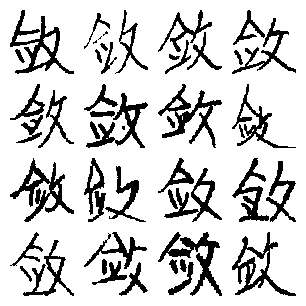 敛敛敛敛
敛敛敛敛
敛敛敛敛
敛敛敛敛